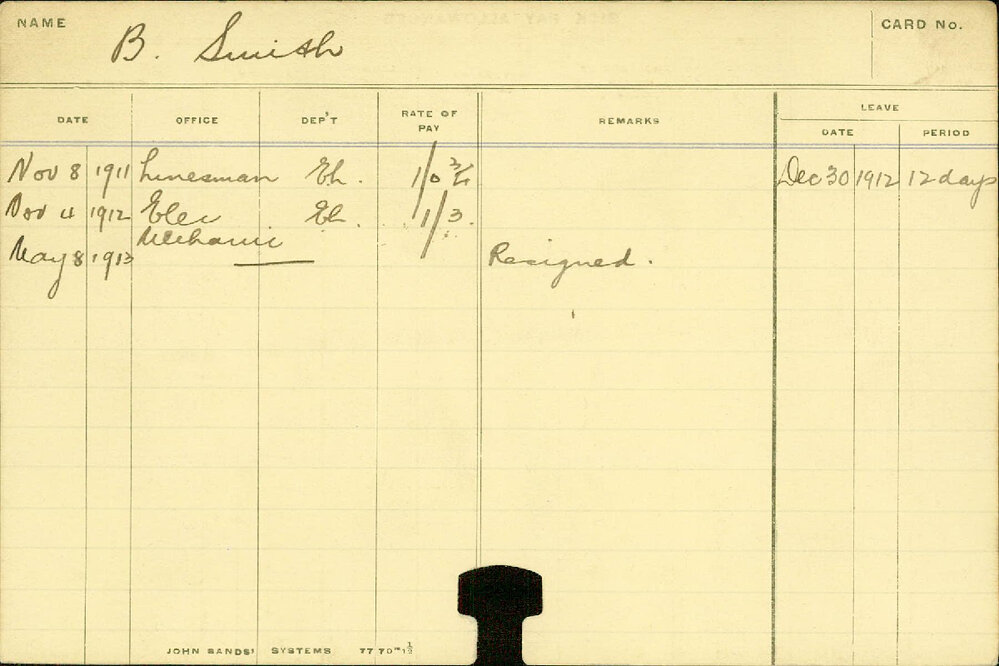 NAME B. Smith CARD No.
DATE OFFICE DEP'T RATE OF PAY REMARKS LEAVE
DATE PERIOD
Nov 8 1911 Linesman El. 1/0 3/4 Dec 30 1912 12 days
Nov 4 1912 Elec El. 1/3.
Mechanic
May 8 1913 Resigned.
JOHN SANDS' SYSTEMS